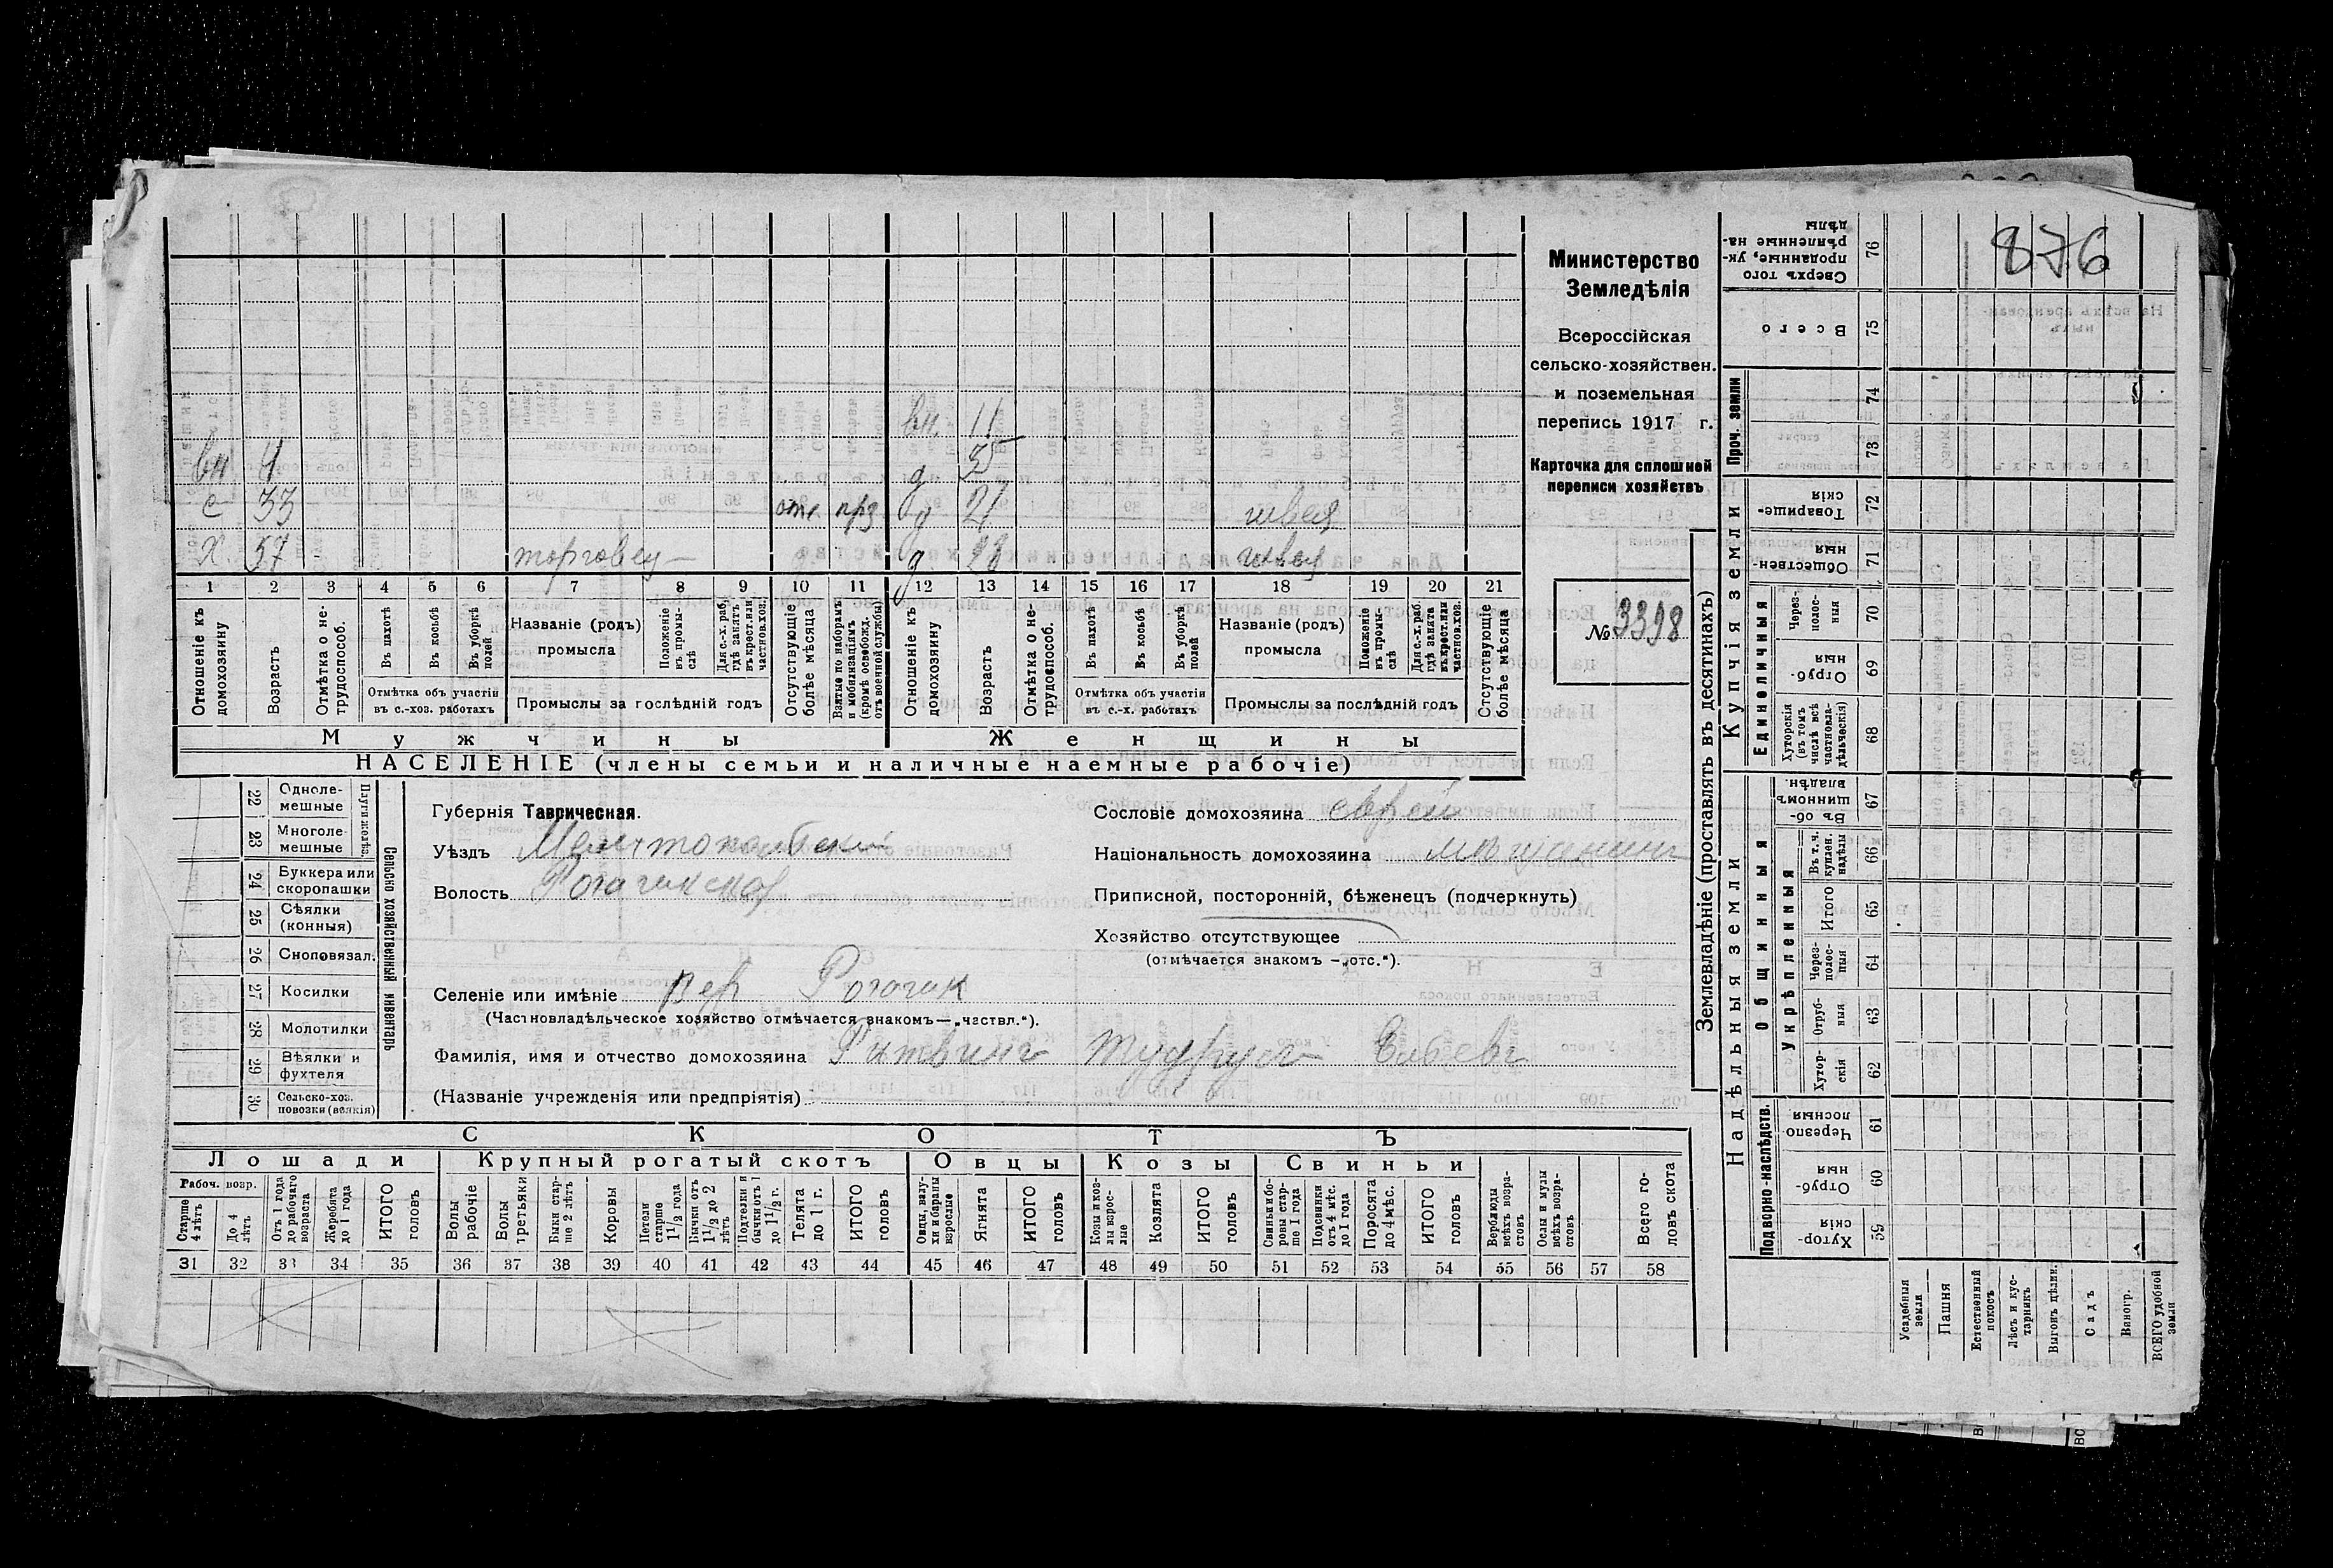 876
Министерство
Земледѣлія
Всероссійская
сельско-хозяйствен.
и поземельная
перепись 1917 г.
Карточка для сплошней
переписи хозяйствъ
№ 3398
вн. 11
вн 4 д
с 33 отс прз д 21 швея
Х. 57 торговец д 28 швея
1 2 3 4 5 6 7 8 9 10 11 12 13 14 15 16 17 18 19 20 21
Отношеніе къ домохозяину
Возрастъ
Отмѣтка о не-трудоспособ.
Въ пахотѣ
Въ косьбѣ
Въ уборкѣ полей
Отмѣтка объ участіи въ с.-хоз. работахъ
Названіе (родъ) промысла
Положеніе въ промы-слѣ
Для с.-х. раб. гдѣ занятъ въ крест. или частнов. хоз.
Промыслы за послѣдній годъ
Отсутствующіе болѣе мѣсяца
Взятые по наборамъ и мобилизаціямъ (кромѣ освобожд. отъ военной службы)
Отношеніе къ домохозяину
Возрастъ
Отмѣтка о не-трудоспособ.
Въ пахотѣ
Въ косьбѣ
Въ уборкѣ полей
Отмѣтка объ участіи въ с.-х. работахъ
Названіе (родъ) промысла
Положеніе въ промы-слѣ
Для с.-х. раб. гдѣ занята въ крест. или частнов. хоз.
Промыслы за послѣдній годъ
Отсутствующіе болѣе мѣсяца
Мужчины Женщины
НАСЕЛЕНІЕ (члены семьи и наличные наемные рабочіе)
Сельско хозяйственный инвентарь
Плуги желѣз.
22 Одноле-мешные
23 Многоле-мешные
24 Буккера или скоропашки
25 Сѣялки (конныя)
26 Сноповязал.
27 Косилки
28 Молотилки
29 Вѣялки и фухтеля
30 Сельско-хоз. повозки (всякія)
Губернія Таврическая.
Уѣздъ Мелитопольский
Волость Рогачикская
Селеніе или имѣніе вер Рогачик
(Частновладѣльческое хозяйство отмѣчается знакомъ—„частвл.“).
Фамилія, имя и отчество домохозяина
(Названіе учрежденія или предпріятія)
Сословіе домохозяина еврей
Національность домохозяина мѣщанинъ
Приписной, посторонній, бѣженецъ (подчеркнуть)
Хозяйство отсутствующее
(отмѣчается знакомъ —„отс.“).
СКОТЪ
Лошади Крупный рогатый скотъ Овцы Козы Свиньи
Рабоч. возр.
Старше 4 лѣтъ
До 4 лѣтъ
Отъ 1 года до рабочаго возраста
Жеребята до 1 года
ИТОГО головъ
Волы рабочіе
Волы третьяки
Быки стар-ше 2 лѣтъ
Коровы
Нетели старше 1½ года
Бычки отъ 1½ до 2 лѣтъ
Подтелки и бычки отъ 1 до 1½ г.
Телята до 1 г.
ИТОГО головъ
Овцы, валу-хи и бараны взрослые
Ягнята
ИТОГО головъ
Козы и коз-лы взрос-лые
Козлята
ИТОГО головъ
Свиньи и бо-ровы стар-ше 1 года
Подсвинки отъ 4 мѣс. до 1 года
Поросята до 4 мѣс.
ИТОГО головъ
Верблюды всѣхъ возра-стовъ
Ослы и мулы всѣхъ возра-стовъ
Всего го-ловъ скота
31 32 33 34 35 36 37 38 39 40 41 42 43 44 45 46 47 48 49 50 51 52 53 54 55 56 57 58
Землевладѣніе (проставлять въ десятинахъ)
Надѣльныя земли Купчія земли Проч. земли
Подворно-наслѣдств.
Общинныя
Укрѣпленныя
Единоличныя
59 Хутор-скія
60 Отруб-ныя
61 Черезпо лосныя
62 Хутор-скія
63 Отруб-ныя
64 Через-полос-ныя
65 Итого
66 Въ т. ч. куплен. надѣлы
67 Въ об-щинномъ владѣн.
68 Хуторскія (въ томъ числѣ всѣ частновла-дѣльческія)
69 Отруб-ныя
70 Через-полос-ныя
71 Обществен-ныя
72 Товарище-скія
73
74
75 Всего
76 Сверхъ того проданные, ук-рѣпленные на-дѣлы
Усадебныя земли
Пашня
Естественный покосъ
Лѣсъ и кус-тарникъ
Выгонъ цѣлин.
Садъ
Виногр.
ВСЕГО удобной земли